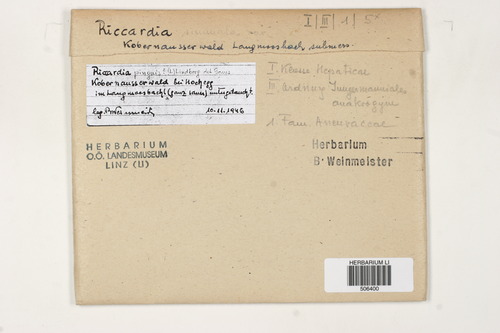 Riccardia
I | III | 1 | 5
Kobernausser wald Langmoosbach, submers.
Riccardia pinguis (L) Lindberg det. Grims
Kobernausserwald bei Hochegg
im Langmoosbachl (ganz unten) untergetaucht.
10.11.1946
I. Klasse Hepaticae
III Ordnung Jungermaniales
anakrogyne
1. Fam. Aneuraceae
HERBARIUM
O.Ö. LANDESMUSEUM
LINZ (LI)
Herbarium
Br Weinmeister
HERBARIUM LI
506400